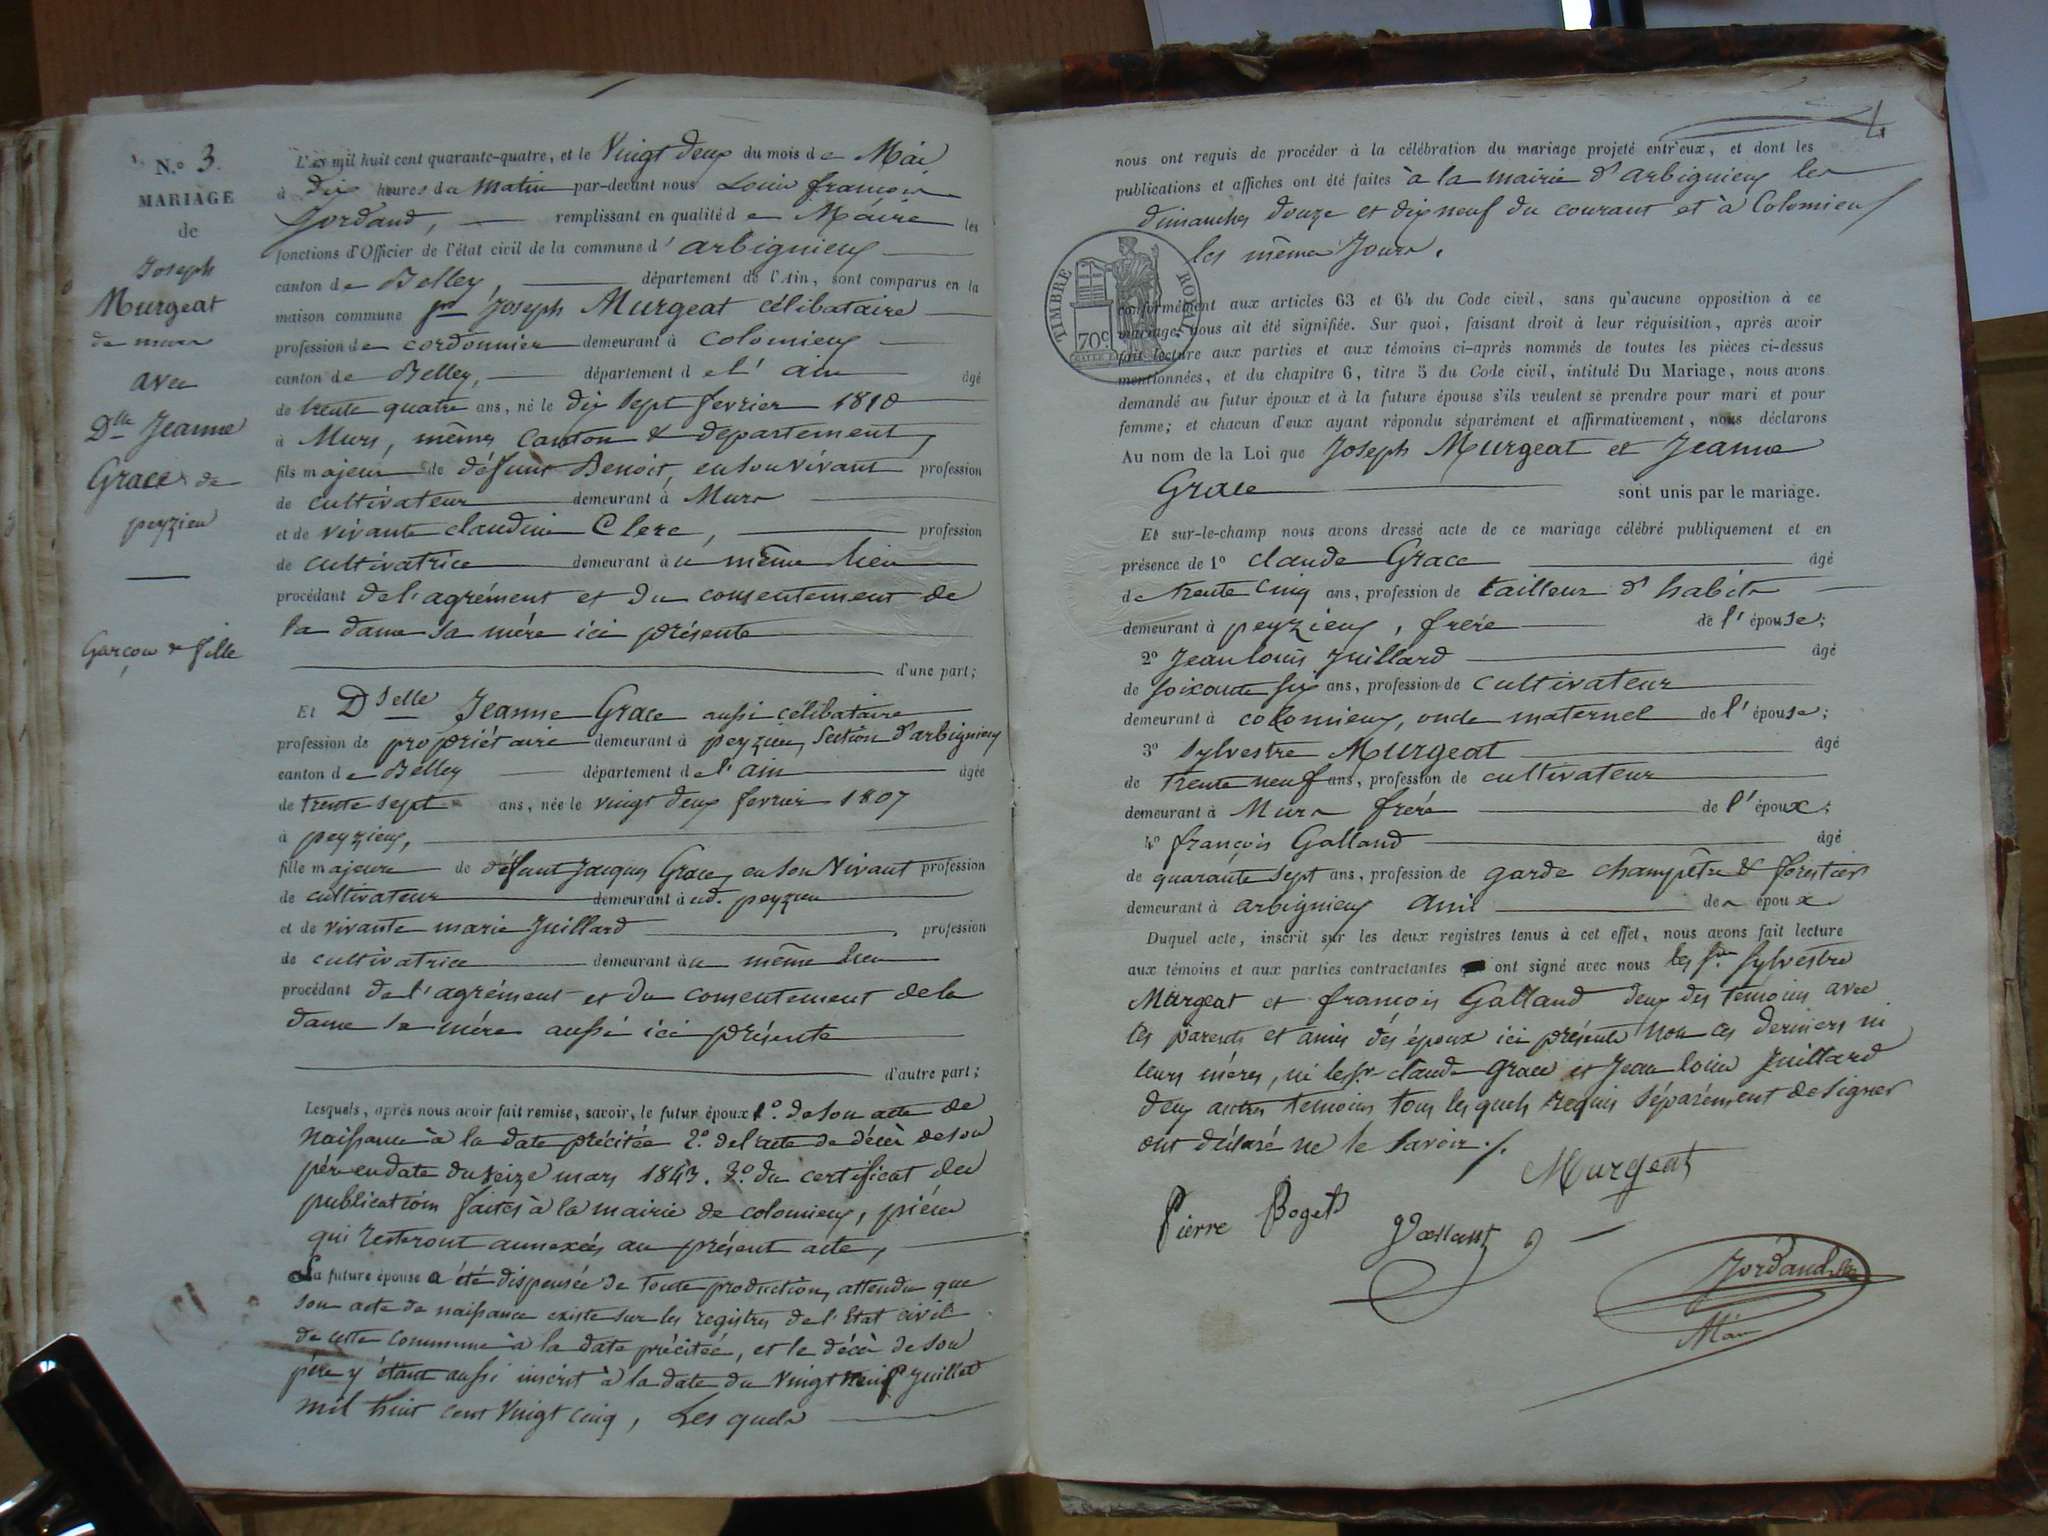 N.o 3.
MARIAGE
de
Joseph
Murgeat
de murs
avec
Dlle Jeanne
Grace de
peyzieu
Garçon & fille
L'an mil huit cent quarante-quatre, et le Vingt deux du mois de Mai
à dix heures du matin par-devant nous Louis françois
Jordand, remplissant en qualité de Maire les
fonctions d'Officier de l'état civil de la commune d'arbignieux
canton de Belley, département de l'Ain, sont comparus en la
maison commune Joseph Murgeat célibataire
profession de cordonnier demeurant à Colomieux
canton de Belley, département de l'ain âgé
de trente quatre ans, né le dix sept fevrier 1810
à Murs, mêmes Canton & departement,
fils majeur de défunt Benoit, en son vivant profession
de cultivateur demeurant à Murs
et de vivante claudine Clerc, profession
de cultivatrice demeurant au même lieu
procédant de l'agrément et du consentement de
la dame sa mére ici présente
d'une part;
Et Dselle Jeanne Grace aussi célibataire
profession de propriétaire demeurant à peyzieu, Section d'arbignieux
canton de Belley département de l'ain âgée
de trente sept ans, née le vingt deux fevrier 1807
à peyzieux,
fille majeure de défunt Jacques Grace, en son Vivant profession
de cultivateur demeurant à ud. peyzieu
et de vivante marie Juillard, profession
de cultivatrice demeurant au même lieu
procédant de l'agrément et du consentement de la
dame sa mére aussi ici présente
d'autre part;
Lesquels, après nous avoir fait remise, savoir, le futur époux 1o. de son acte de
Naissance à la date précitée 2o. de l'acte de décès de son
pére en date du seize mars 1843. 3o. du certificat des
publications faites à la mairie de colomieux, piéces
qui resteront annexées au présent acte,
La future épouse a été dispensée de toute production, attendu que
son acte de naissance existe sur les registres de l'Etat civil
de cette commune à la date précitée, et le décès de son
pére y étant aussi inscrit à la date du Vingt neuf Juillet
mil huit cent Vingt cinq, Les quels
4
nous ont requis de procéder à la célébration du mariage projeté entr'eux, et dont les
publications et affiches ont été faites à la mairie d'arbignieux les
dimanches douze et dix neuf du courant et à Colomieux
les même Jours.
TIMBRE ROYAL
70c
conformément aux articles 63 et 64 du Code civil, sans qu'aucune opposition à ce
mariage nous ait été signifiée. Sur quoi, faisant droit à leur réquisition, après avoir
fait lecture aux parties et aux témoins ci-après nommés de toutes les pièces ci-dessus
mentionnées, et du chapitre 6, titre 5 du Code civil, intitulé Du Mariage, nous avons
demandé au futur époux et à la future épouse s'ils veulent se prendre pour mari et pour
femme; et chacun d'eux ayant répondu séparément et affirmativement, nous déclarons
Au nom de la Loi que Joseph Murgeat et Jeanne
Grace sont unis par le mariage.
Et sur-le-champ nous avons dressé acte de ce mariage célébré publiquement et en
présence de 1o claude Grace âgé
de trente cinq ans, profession de tailleur d'habits
demeurant à peyzieux, frére de l'épouse;
2o Jean louis Juillard âgé
de soixante six ans, profession de cultivateur
demeurant à colomieux, oncle maternel de l'épouse;
3o Sylvestre Murgeat âgé
de trente neuf ans, profession de cultivateur
demeurant à Murs frére de l'époux;
4o françois Galland âgé
de quarante sept ans, profession de garde champêtre & forestier
demeurant à arbignieux ami des époux
Duquel acte, inscrit sur les deux registres tenus à cet effet, nous avons fait lecture
aux témoins et aux parties contractantes ont signé avec nous les srs Sylvestre
Murgeat et françois Galland deux des témoins avec
les parents et amis dés époux ici présents Non ces derniers ni
leurs méres, ni le sr claude Grace et Jean louis Juillard
deux autres témoins tous lesquels requis séparément de signer
ont déclaré ne le savoir./.
Murgeat
Pierre Boget
Galland
Jordand
Maire